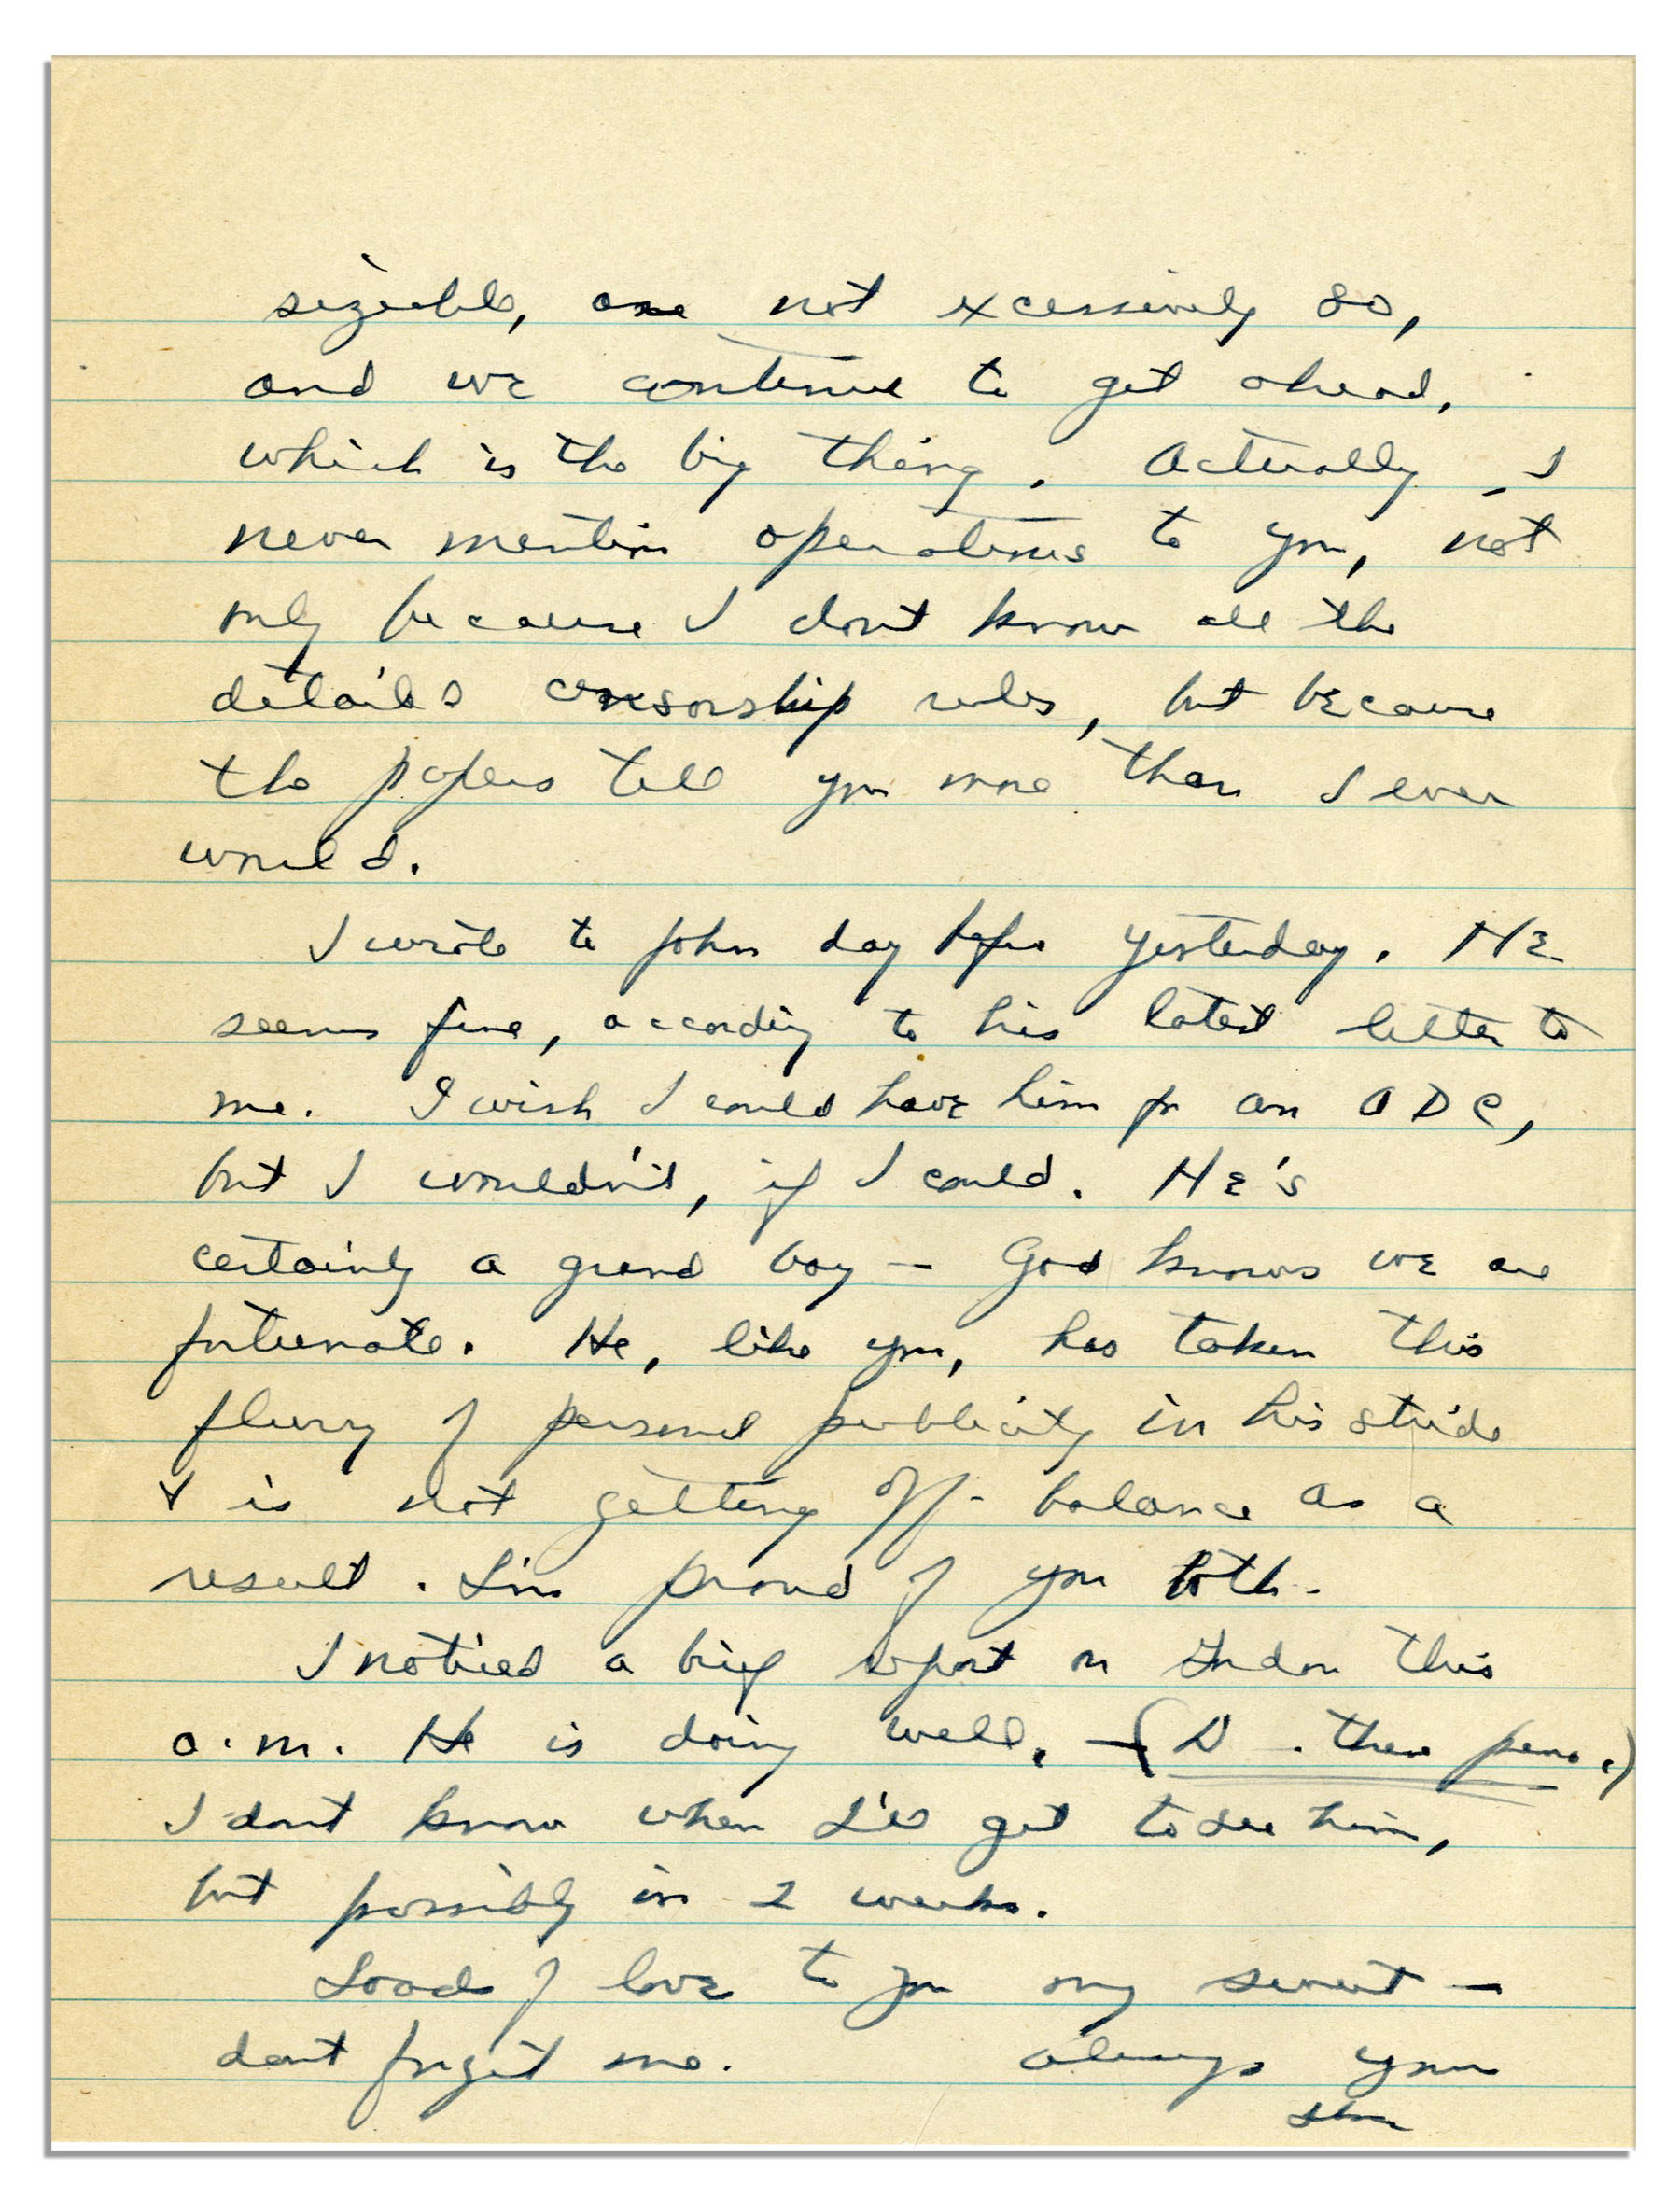 sizeable, are not excessively so,
and we continue to get ahead,
which is the big thing. Actually, I
never mention operations to you, not
only because I don't know all the
details censorship rules, but because
the papers tell you more than I ever
would.
I wrote to John day before yesterday. HE
seems fine, according to his latest letter to
me. I wish I could have him for an ADC,
but I wouldn't, if I could. HE's
certainly a grand boy — God knows we are
fortunate. He, like you, has taken this
flurry of personal publicity in his stride
& is not getting off-balance as a
result. I'm proud of you both.
I noticed a brief report on Gordon this
a.m. He is doing well. — (D . these pens.)
I don't know when I'll get to see him,
but possibly in 2 weeks.
Loads of love to you my sweet —
don't forget me. Always your